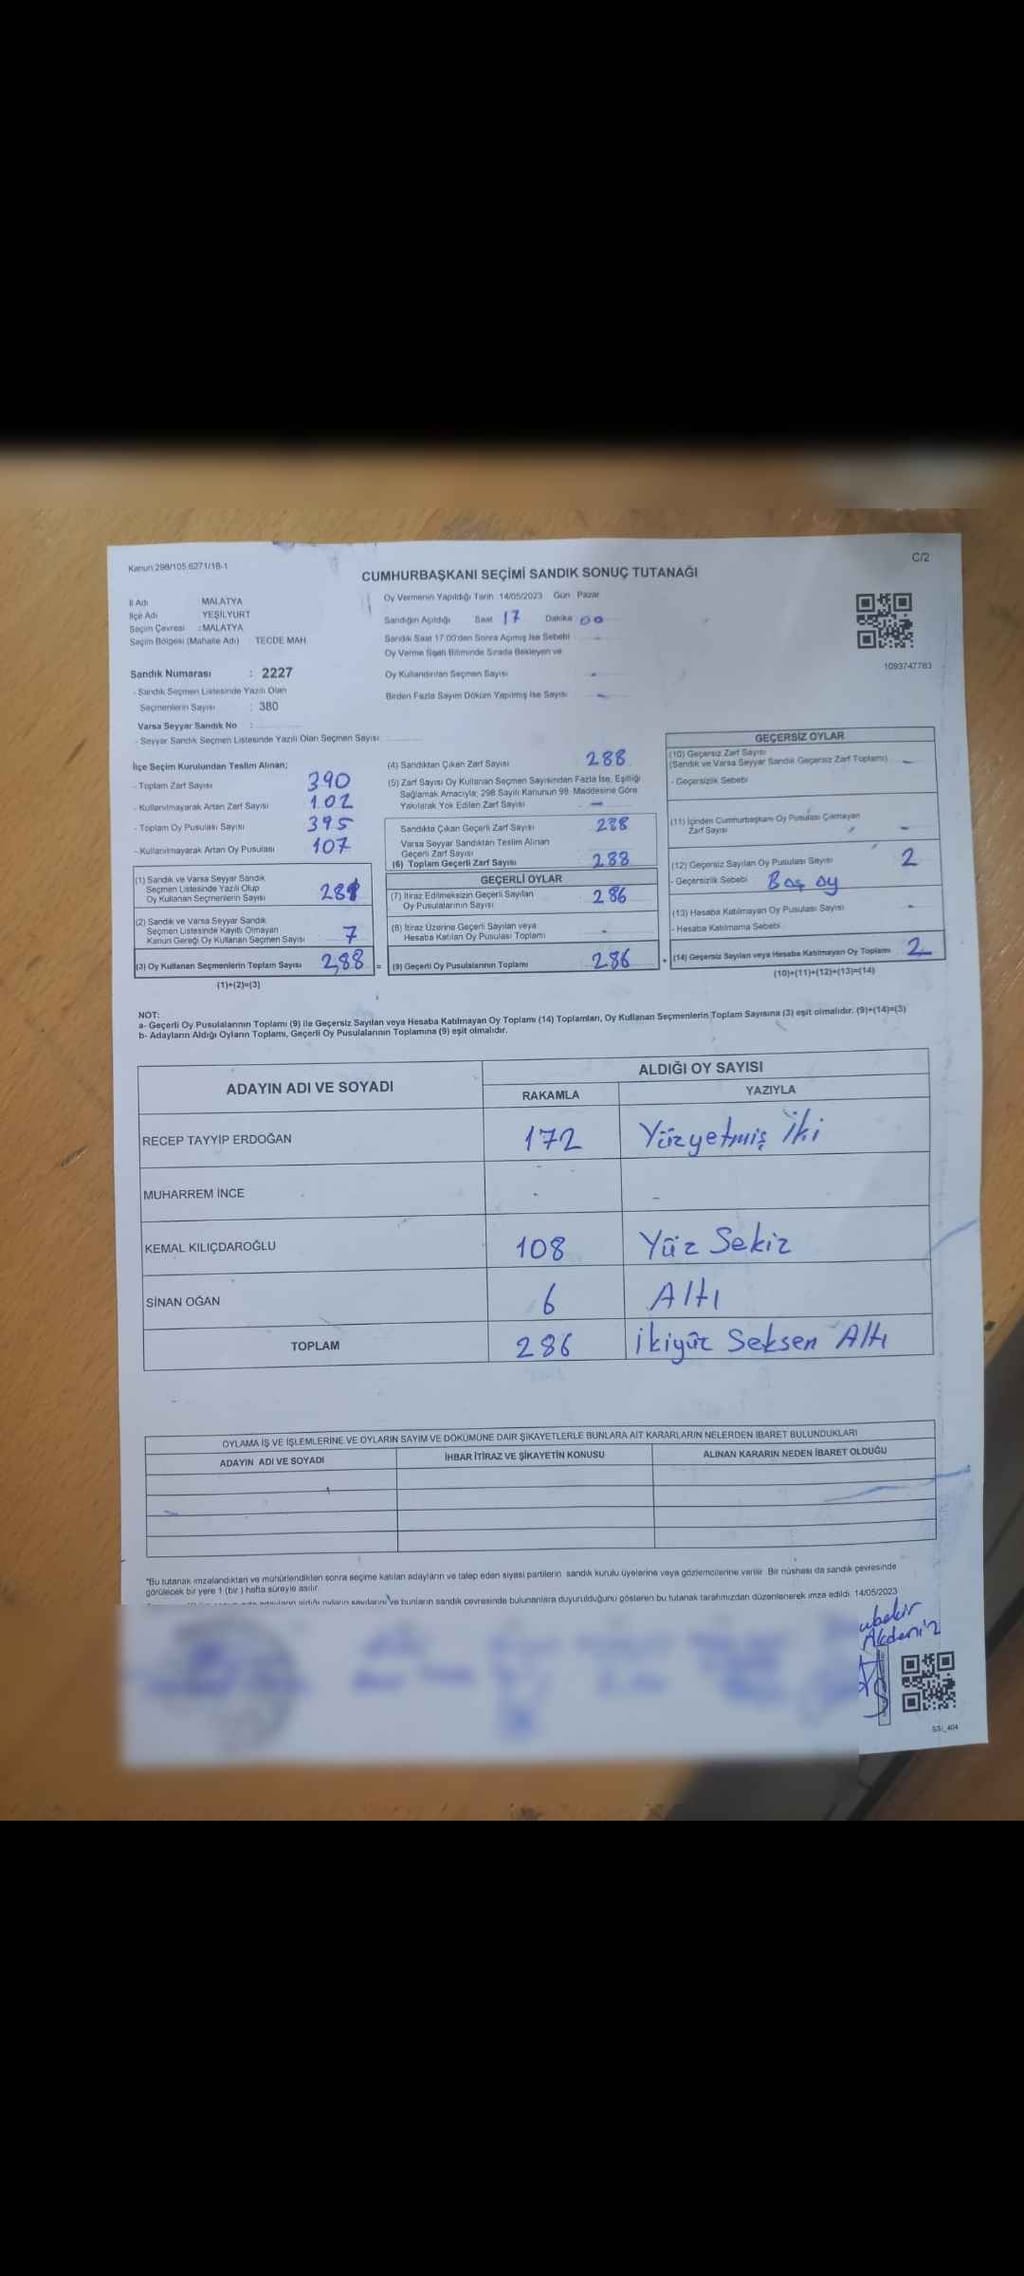 Kanun 298/105 6271/18-1
C/2
CUMHURBAŞKANI SEÇİMİ SANDIK SONUÇ TUTANAĞI
İl Adı MALATYA
İlçe Adı YEŞİLYURT
Seçim Çevresi : MALATYA
Seçim Bölgesi (Mahalle Adı) TECDE MAH.
Sandık Numarası : 2227
- Sandık Seçmen Listesinde Yazılı Olan
Seçmenlerin Sayısı : 380
Varsa Seyyar Sandık No :
- Seyyar Sandık Seçmen Listesinde Yazılı Olan Seçmen Sayısı
Oy Vermenin Yapıldığı Tarih 14/05/2023 Gün Pazar
Sandığın Açıldığı Saat 17 Dakika 00
Sandık Saat 17:00'den Sonra Açılmış İse Sebebi -
Oy Verme İşlemi Bitiminde Sırada Bekleyen ve
Oy Kullandırılan Seçmen Sayısı -
Birden Fazla Sayım Döküm Yapılmış İse Sayısı -
1093747763
İlçe Seçim Kurulundan Teslim Alınan;
- Toplam Zarf Sayısı 390
- Kullanılmayarak Artan Zarf Sayısı 102
- Toplam Oy Pusulası Sayısı 395
- Kullanılmayarak Artan Oy Pusulası 107
(1) Sandık ve Varsa Seyyar Sandık
Seçmen Listesinde Yazılı Olup
Oy Kullanan Seçmenlerin Sayısı 281
(2) Sandık ve Varsa Seyyar Sandık
Seçmen Listesinde Kayıtlı Olmayan
Kanun Gereği Oy Kullanan Seçmen Sayısı 7
(3) Oy Kullanan Seçmenlerin Toplam Sayısı 288 =
(1)+(2)=(3)
(4) Sandıktan Çıkan Zarf Sayısı 288
(5) Zarf Sayısı Oy Kullanan Seçmen Sayısından Fazla İse, Eşitliği
Sağlamak Amacıyla; 298 Sayılı Kanunun 98. Maddesine Göre
Yakılarak Yok Edilen Zarf Sayısı -
Sandıkta Çıkan Geçerli Zarf Sayısı 288
Varsa Seyyar Sandıktan Teslim Alınan
Geçerli Zarf Sayısı
(6) Toplam Geçerli Zarf Sayısı 288
GEÇERLİ OYLAR
(7) İtiraz Edilmeksizin Geçerli Sayılan
Oy Pusulalarının Sayısı 286
(8) İtiraz Üzerine Geçerli Sayılan veya
Hesaba Katılan Oy Pusulası Toplamı -
(9) Geçerli Oy Pusulalarının Toplamı 286 +
GEÇERSİZ OYLAR
(10) Geçersiz Zarf Sayısı
(Sandık ve Varsa Seyyar Sandık Geçersiz Zarf Toplamı) -
- Geçersizlik Sebebi
(11) İçinden Cumhurbaşkanı Oy Pusulası Çıkmayan
Zarf Sayısı -
(12) Geçersiz Sayılan Oy Pusulası Sayısı 2
- Geçersizlik Sebebi Boş oy
(13) Hesaba Katılmayan Oy Pusulası Sayısı -
- Hesaba Katılmama Sebebi
(14) Geçersiz Sayılan veya Hesaba Katılmayan Oy Toplamı 2
(10)+(11)+(12)+(13)=(14)
NOT:
a- Geçerli Oy Pusulalarının Toplamı (9) ile Geçersiz Sayılan veya Hesaba Katılmayan Oy Toplamı (14) Toplamları, Oy Kullanan Seçmenlerin Toplam Sayısına (3) eşit olmalıdır. (9)+(14)=(3)
b- Adayların Aldığı Oyların Toplamı, Geçerli Oy Pusulalarının Toplamına (9) eşit olmalıdır.
ADAYIN ADI VE SOYADI ALDIĞI OY SAYISI
RAKAMLA YAZIYLA
RECEP TAYYİP ERDOĞAN 172 Yüzyetmiş İki
MUHARREM İNCE - -
KEMAL KILIÇDAROĞLU 108 Yüz Sekiz
SİNAN OĞAN 6 Altı
TOPLAM 286 İkiyüz Seksen Altı
OYLAMA İŞ VE İŞLEMLERİNE VE OYLARIN SAYIM VE DÖKÜMÜNE DAİR ŞİKAYETLERLE BUNLARA AİT KARARLARIN NELERDEN İBARET BULUNDUKLARI
ADAYIN ADI VE SOYADI İHBAR İTİRAZ VE ŞİKAYETİN KONUSU ALINAN KARARIN NEDEN İBARET OLDUĞU
*Bu tutanak imzalandıktan ve mühürlendikten sonra seçime katılan adayların ve talep eden siyasi partilerin sandık kurulu üyelerine veya gözlemcilerine verilir. Bir nüshası da sandık çevresinde
görülecek bir yere 1 (bir) hafta süreyle asılır.
adayların aldığı oyların sayılarını ve bunların sandık çevresinde bulunanlara duyurulduğunu gösteren bu tutanak tarafımızdan düzenlenerek imza edildi. 14/05/2023
ubekir
Akdeniz